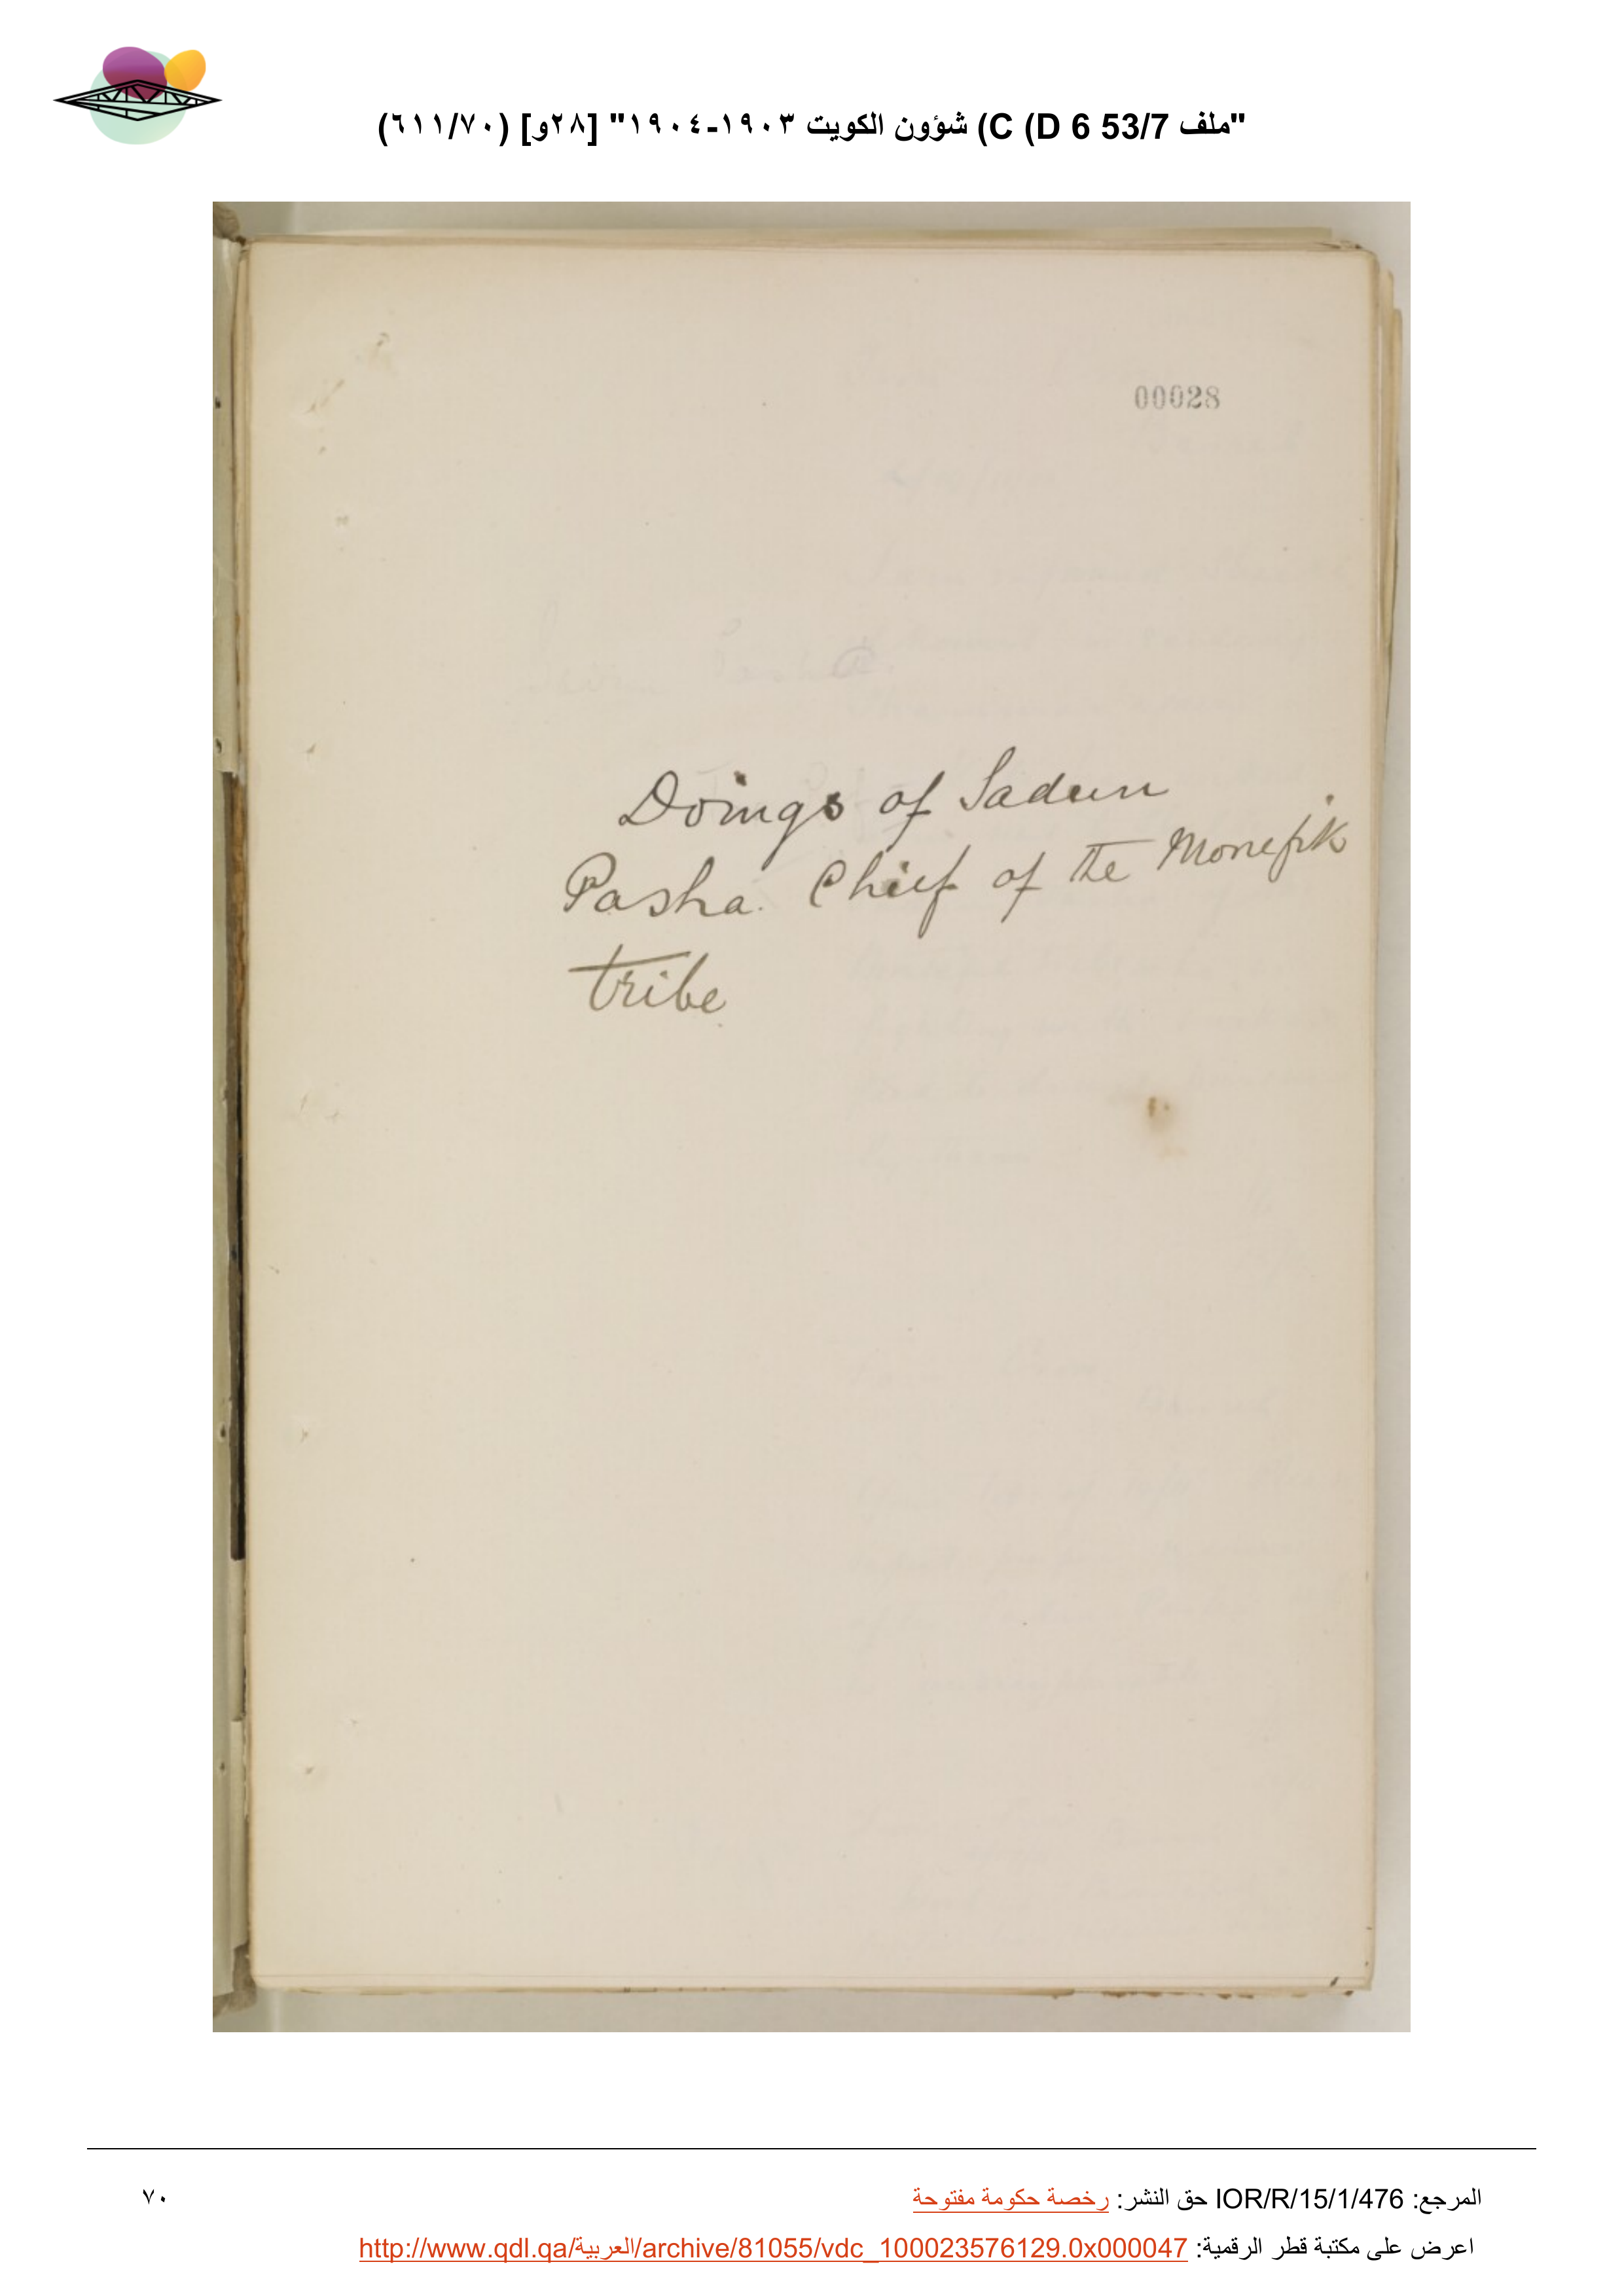 "ملف 53/7 C (D 6) شؤون الكويت ١٩٠٣-١٩٠٤" [٢٨و] (٦١١/٧٠)
00028
Doings of Sadun
Pasha. Chief of the Monefik
tribe
المرجع: IOR/R/15/1/476 حق النشر: رخصة حكومة مفتوحة
٧٠
اعرض على مكتبة قطر الرقمية: http://www.qdl.qa/العربية/archive/81055/vdc_100023576129.0x000047